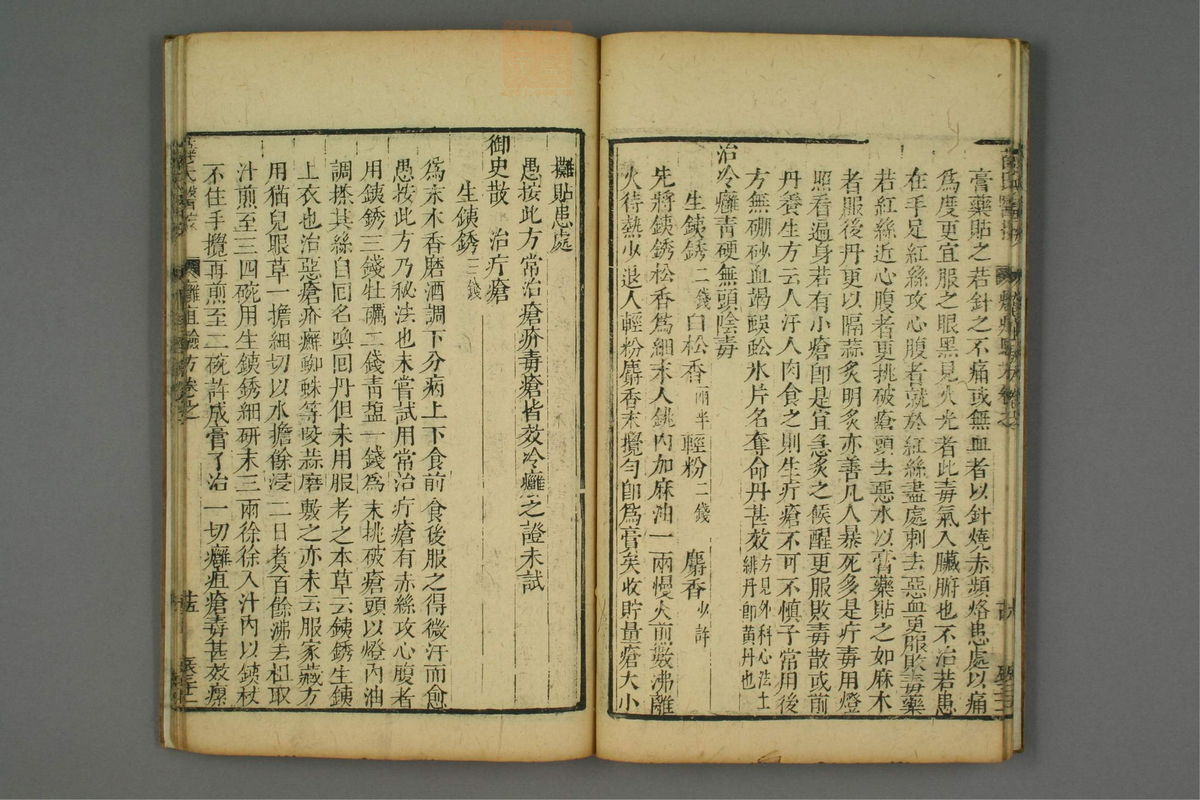 膏藥貼之若針之不痛或無血者以針燒赤頻烙患處以痛
為度更宜服之眼黑見火光者此毒氣入臟腑也不治若患
在手足紅絲攻心腹者就於紅絲盡處刺去惡血更服敗毒藥
若紅絲近心腹者更挑破瘡頭去惡水以膏藥貼之如麻木
者服後丹更以隔蒜炙明炙亦善凡人暴死多是疔毒用燈
照看遍身若有小瘡即是宜急炙之候醒更服敗毒散或前
丹養生方云人汗入肉食之則生疔瘡不可不慎子常用後
方無硼砂血竭蜈蚣氷片名奪命丹甚效方見外科心法土
緋丹即黄丹也
治冷癰青硬無頭陰毒
生鉄銹二錢白松香一兩半輕粉二錢 麝香少許
先將鉄銹松香為細末人銚内加麻油一兩慢火煎數沸離
火待熱少退人輕粉麝香末攪勻即為膏矣收貯量瘡大小
攤貼患處
愚按此方常治瘡疥毒瘡皆效冷癰之證未試
御史散 治疔瘡
生鉄銹三錢
為末木香磨酒調下分病上下食前食後服之得微汗而愈
愚按此方乃秘法也未嘗試用常治疔瘡有赤絲攻心腹者
用鉄銹三錢牡礪二錢青塩一錢為末挑破瘡頭以燈内油
調搽其絲自囘名喚囘丹但未用服考之本草云鉄銹生鉄
上衣也治惡瘡疥癬蜘蛛等咬蒜磨敷之亦未云服家藏方
用猫兒眼草一擔細切以水擔餘浸二日煑百餘沸去柤取
汁煎至三四碗用生鉄銹細研末三兩徐徐入汁内以鉄杖
不住手攪再煎至二碗許成膏了治一切癰疽瘡毒甚效瘭